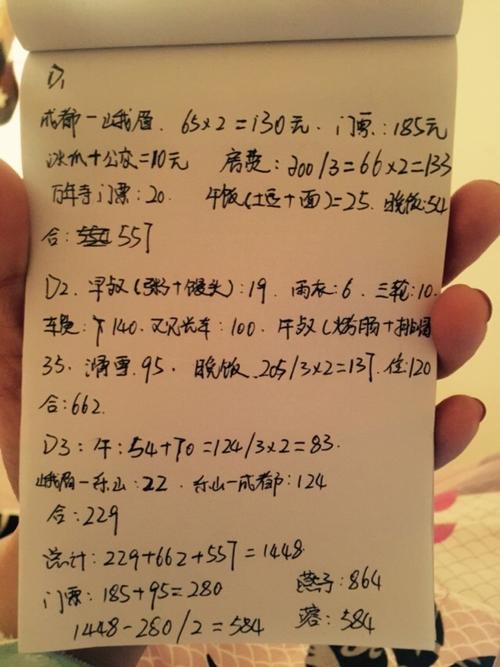 D1
成都—峨眉. 65×2=130元. 门票:185元
冰爪+公交=10元 房费:200/3=66×2=133
万年寺门票:20. 午饭(土豆+面)=25. 晚饭:54
合: 557
D2. 早饭(粥+馒头):19. 雨衣:6. 三轮:10.
车免:下140. 观光车:100. 午饭(烤肠+
35. 滑雪.95. 晚饭.205/3×2=137.住:120
合:662.
D3:午:54+70=124/3×2=83.
峨眉—乐山:22. 乐山—成都:124
合:229
总计:229+662+557=1448.
门票:185+95=280 燕子:864
1448-280/2=584 蓉:584